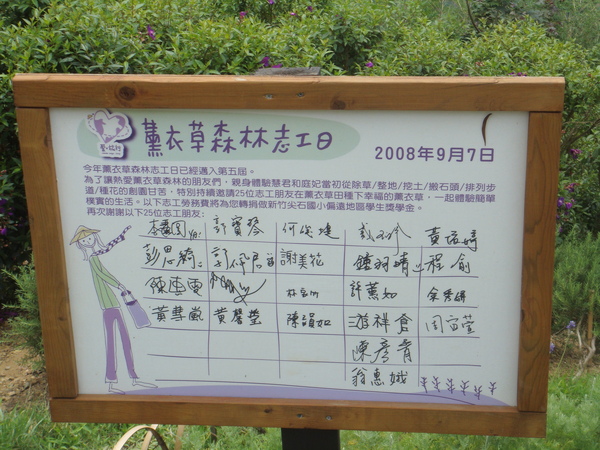 愛•旅行
薰衣草森林志工日
2008年9月7日
今年薰衣草森林志工日已經邁入第五屆。
為了讓熱愛薰衣草森林的朋友們，親身體驗慧君和庭妃當初從除草/整地/挖土/搬石頭/排列步
道/種花的創園甘苦，特別持續邀請25位志工朋友在薰衣草田種下幸福的薰衣草，一起體驗簡單
樸實的生活。以下志工勞務費將為您轉捐做新竹尖石國小偏遠地區學生獎學金。
再次謝謝以下25位志工朋友：
彭思綺 謝美花 程俞
許薰如
黃彗嵐 黃馨瑩 陳韻如 游祥倉 周宜萱
陳彥肯
翁惠娥